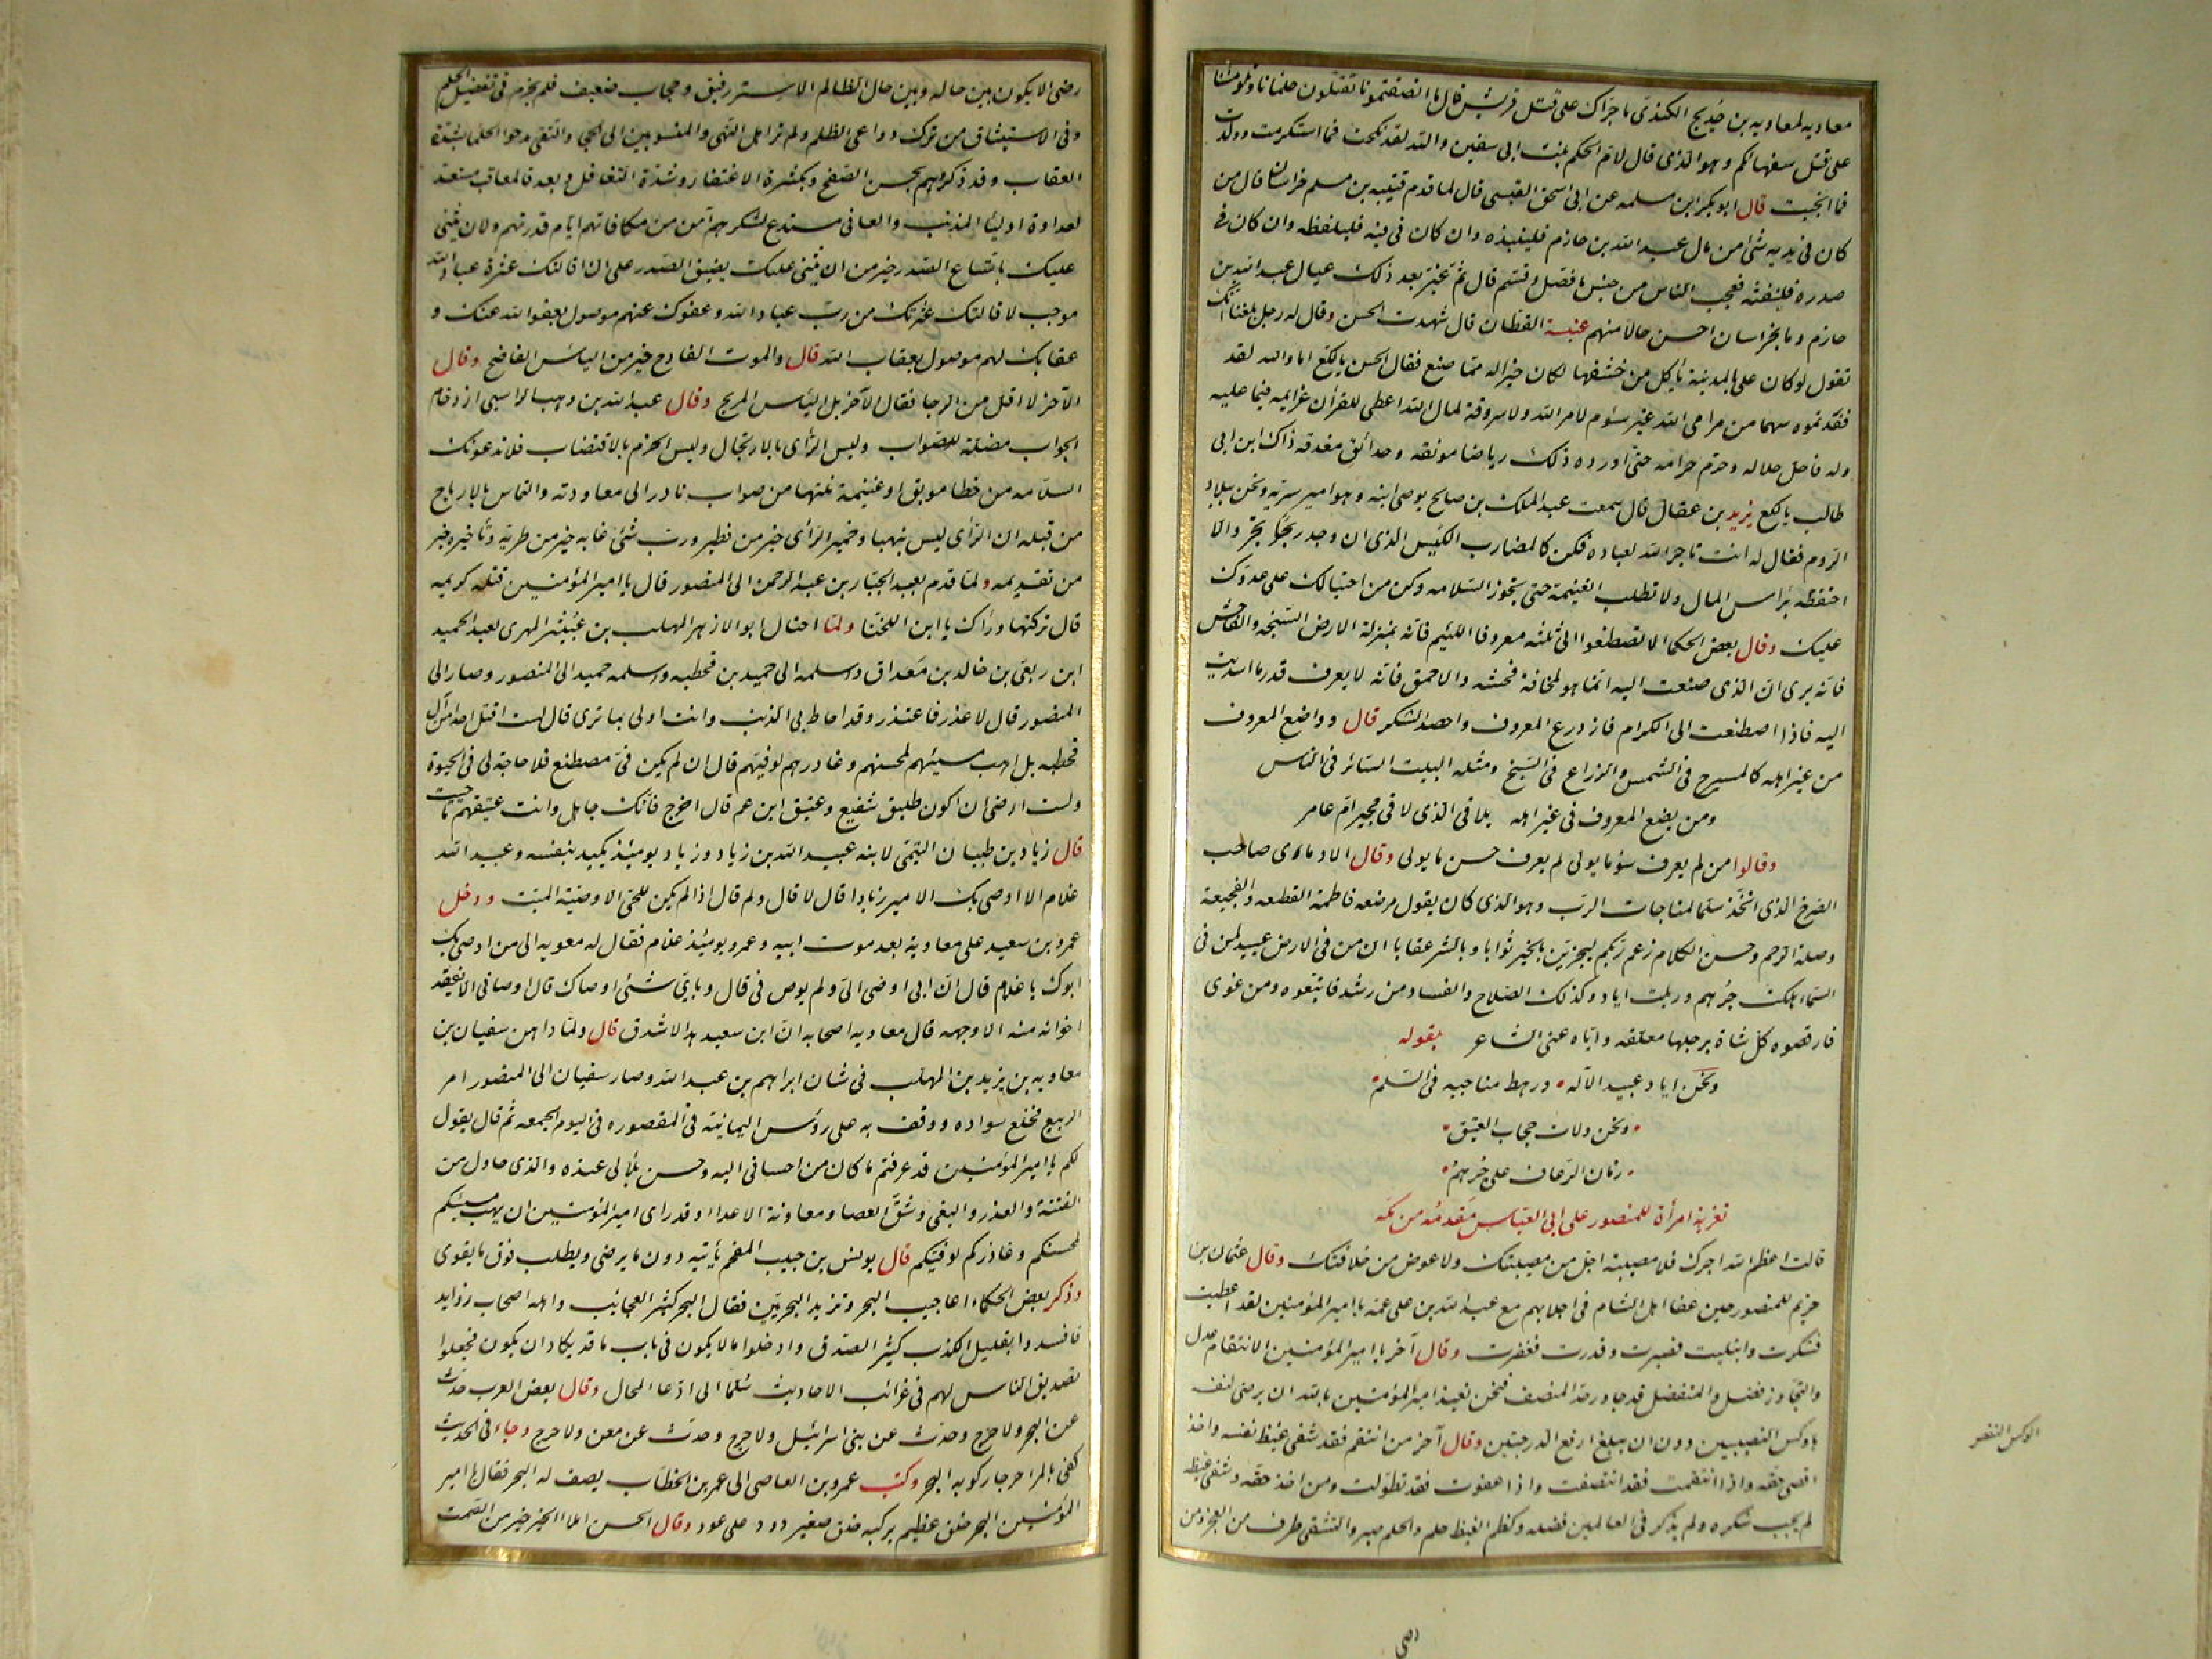 معاويه لمعاويه بن خديج الكندى ما جراك على قتل قريش قال ما انصفتمونا تقتلون حلمانا وتلومننا
على قتل سفهائكم وهو الذى قال لام الحكم بنت ابى سفين والله لقد نكحت فما استكرمت وولدت
فما انجبت قال ابو بكر ابن مسلمه عن ابى اسحق القيسى قال لما قدم قتيبه بن مسلم خراسان قال من
كان فى يديه شئ من مال عبد الله بن حازم فلينبذه وان كان فى فيه فليلفظه وان كان فى
صدره فلينفثه فعجب الناس من حسن ما فصل وقسم قال ثم غبر بعد ذلك عيال عبد الله بن
حازم وما بخراسان احسن حالا منهم عنبسة القطان قال شهدت الحسن وقال له رجل بلغنا انك
تقول لو كان على بالمدينة ياكل من حشفها لكان خيرا له مما صنع فقال الحسن يا لكع اما والله لقد
فقدتموه سهما من مرامى الله غير سؤم لامر الله ولا سروقة لمال الله اعطى للقرآن عزايمه فيما عليه
وله فاحل حلاله وحرم حرامه حتى اورده ذلك رياضا مونقه وحدائق مغدقه ذاك ابن ابى
طالب يا لكع يزيد بن عقال قال سمعت عبد الملك بن صالح يوصى ابنه وهو امير سريه ونحن ببلاد
الروم فقال له انت تاجر الله لعباده فكن كالمضارب الكيس الذى ان وجد ربحا تجر والا
احتفظ برأس المال ولا تطلب الغنيمة حتى تحوز السلامه وكن من احتيالك على عدوك
عليك وقال بعض الحكما لا تصطنعوا الى ثلثه معروفا اللئيم فانه بمنزلة الارض السبخه والفاحش
فانه يرى ان الذى صنعت اليه انما هو لمخافة فحشه والاحمق فانه لا يعرف قدر ما اسديت
اليه فاذا اصطنعت الى الكرام فازدرع المعروف واحصد الشكر قال وواضع المعروف
من غير اهله كالمسرح فى الشمس والزارع فى السبخ ومثله البيت السائر فى الناس
ومن يضع المعروف فى غير اهله يلاقى الذى لاقى مجير ام عامر
وقالوا من لم يعرف سؤ ما يولى لم يعرف حسن ما يولى وقال الايادى صاحب
الصرح الذى اتخذ سلما لمناجات الرب وهو الذى كان يقول مرضعه فاطمة القطعه والفجيعة
وصلة الرحم وحسن الكلام زعم ربكم ليجزين بالخير ثوابا وبالشر عقابا ان من فى الارض عبيد لمن فى
السما هلكت جرهم وربلت اياد وكذلك الصلاح والفساد ومن رشد فاتبعوه ومن غوى
فارفضوه كل شاة برجلها معلقه واياه عنى الشاعر بقوله
ونحن اياد عبيد الاله ورهط مناجيه فى السلم
ونحن ولات حجاب العتيق
زمان الرعاف على جرهم
تعزية امرأة للمنصور على ابى العباس مقدمه من مكه
قالت اعظم الله اجرك فلا مصيبة اجل من مصيبتك ولا عوض من خلافتك وقال عثمان بن
خريم للمنصور حين عفا اهل الشام فى اجلابهم مع عبد الله بن على عمه يا امير المؤمنين لقد اعطيت
فشكرت وابتليت فصبرت وقدرت فغفرت وقال آخر يا امير المؤمنين الانتقام عدل
والتجاوز فضل والمتفضل قد جاوز حد المنصف فنحن نعيذ امير المؤمنين بالله ان يرضى لنفسه
باوكس النصيبين دون ان يبلغ ارفع الدرجتين وقال آخر من انتقم فقد شفى غيظ نفسه واخذ
اقصى حقه واذا انتقمت فقد انتصفت واذا عفوت فقد تطولت ومن اخذ حقه وشفى غيظه
لم يجب شكره ولم يذكر فى العالمين فضله وكظم الغيظ حلم والحلم صبر والتشفى طرف من العجز ومن
الوكس النقص
رضى
رضى الا يكون بين حاله وبين حال الظالم الا ستر رقيق وحجاب ضعيف فلم يجزم فى تفضيل الحلم
وفى الاستيثاق من ترك دواعى الظلم ولم تر اهل النهى والمنسوبين الى الحجى والتقى مدحوا الحلما بشدة
العقاب وقد ذكروهم بحسن الصفح وبكثرة الاغتفار وشدة التغافل وبعد فالمعاقب مستعد
لعداوة اوليا المذنب والعافى مستدع لشكرهم آمن من مكافاتهم ايام قدرتهم ولان يثنى
عليك باتساع الصدر خير من ان يثنى عليك بضيق الصدر على ان اقالتك عثرة عباد الله
موجب لاقالتك عثرتك من رب عباد الله وعفوك عنهم موصول بعفو الله عنك و
عقابك لهم موصول بعقاب الله قال والموت الفادح خير من الياس الفاضح وقال
الآخر لا اقل من الرجا فقال الآخر بل اليأس المريح وقال عبد الله بن وهب الراسبى ازدحام
الجواب مضلة للصواب وليس الرأى بالارتجال وليس الحزم بالاقتضاب فلا تدعونك
السلامه من خطا موبق او غنيمة نلتها من صواب نادر الى معاودته والتماس الارباح
من قبله ان الرأى ليس بنهبا وخمير الرأى خير من فطيره ورب شئ غابه خير من طريه وتأخيره خير
من تقديمه ولما قدم بعبد الجبار بن عبد الرحمن الى المنصور قال يا امير المؤمنين قتله كريمه
قال تركتها وراك يا ابن اللخنا ولما احتال ابو الازهر المهلب بن عبيثر المهرى لعبد الحميد
ابن ربعى بن خالد بن معداق واسلمه الى حميد بن قحطبه واسلمه حميد الى المنصور وصار الى
المنصور قال لا عذر فاعتذر وقد احاط بى الذنب وانت اولى بما ترى قال لست اقتل احدا من آل
قحطبه بل اهب مسيئهم لمحسنهم وغادرهم لوفيهم قال ان لم يكن فى مصطنع فلا حاجة لى فى الحيوة
ولست ارضى ان اكون طليق شفيع وعتيق ابن عم قال اخرج فانك جاهل وانت عتيقهم ما حييت
قال زياد بن ظبيان التيمى لابنه عبيد الله بن زياد وزياد يومئذ يكيد بنفسه وعبيد الله
غلام الا اوصى بك الامير زيادا قال لا قال ولم قال اذا لم يكن للحى الا وصية الميت ودخل
عمرو بن سعيد على معاوية بعد موت ابيه وعمرو يومئذ غلام فقال له معويه الى من اوصى بك
ابوك يا غلام قال ان ابى اوصى الى ولم يوص فى قال وباى شئ اوصاك قال اوصانى الا يفقد
اخوانه منه الا وجهه قال معاويه اصحابه ان ابن سعيد هذا لاشدق قال ولما داهن سفيان بن
معاويه بن يزيد بن المهلب فى شان ابراهيم بن عبد الله وصار سفيان الى المنصور امر
الربيع فخلع سواده ووقف به على رؤس اليمانية فى المقصوره فى اليوم الجمعه ثم قال يقول
لكم يا امير المؤمنين قد عرفتم ما كان من احسانى اليه وحسن بلائى عنده والذى حاول من
الفتنة والغدر والبغى وشق العصا ومعاونة الاعداء وقد راى امير المؤمنين ان يهب مسيئكم
لمحسنكم وغادركم لوفيكم قال يونس بن حبيب المفحم يأتيه دون ما يرضى ويطلب فوق ما يقوى
وذكر بعض الحكماء اعاجيب البحر وتزيد البحريين فقال البحر كثير العجائب واهله اصحاب زوايد
فافسدوا بقليل الكذب كثير الصدق وادخلوا ما لا يكون فى باب ما قد يكاد ان يكون فجعلوا
تصديق الناس لهم فى غرائب الاحاديث سلما الى ادعا المحال وقال بعض العرب حدث
عن البحر ولا حرج وحدث عن بنى اسرائيل ولا حرج وحدث عن معن ولا حرج وجاء فى الحديث
كفى بالمرا حرجا ركوبه البحر وكتب عمرو بن العاصى الى عمر بن الخطاب يصف له البحر فقال يا امير
المؤمنين البحر خلق عظيم يركبه خلق صغير دود على عود وقال الحسن املاا الخير خير من الصمت